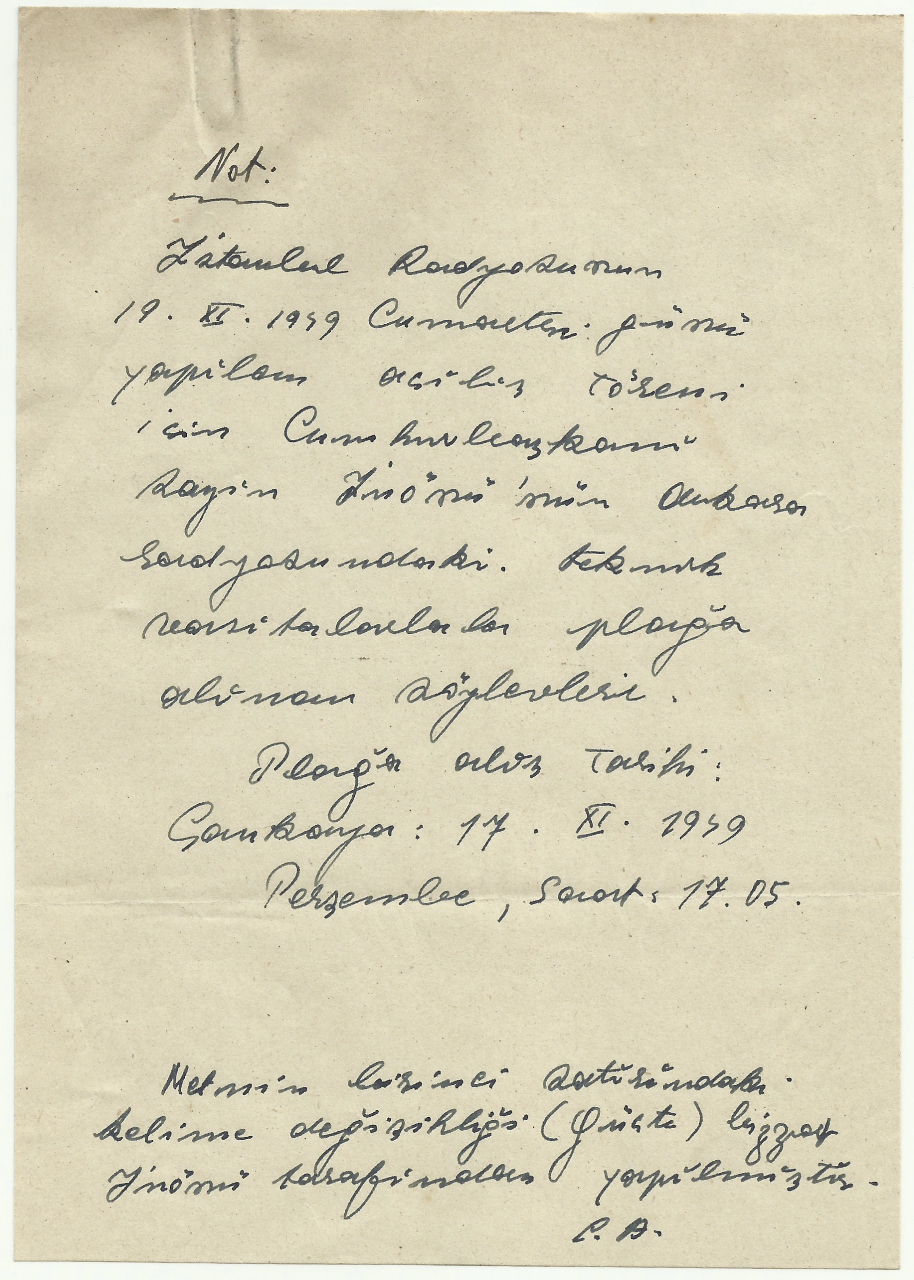 Not:
İstanbul Radyosunun
19. XI. 1949 Cumartesi günü
yapılan açılış töreni
için Cumhurbaşkanı
Sayın İnönü'nün Ankara
Radyosundaki teknik
vasıtalarla plağa
alınan söylevleri.
Plağa alış tarihi:
Çankaya: 17. XI. 1949
Perşembe, Saat: 17.05.
Metnin birinci satırındaki
kelime değişikliği ( ) bizzat
İnönü tarafından yapılmıştır.